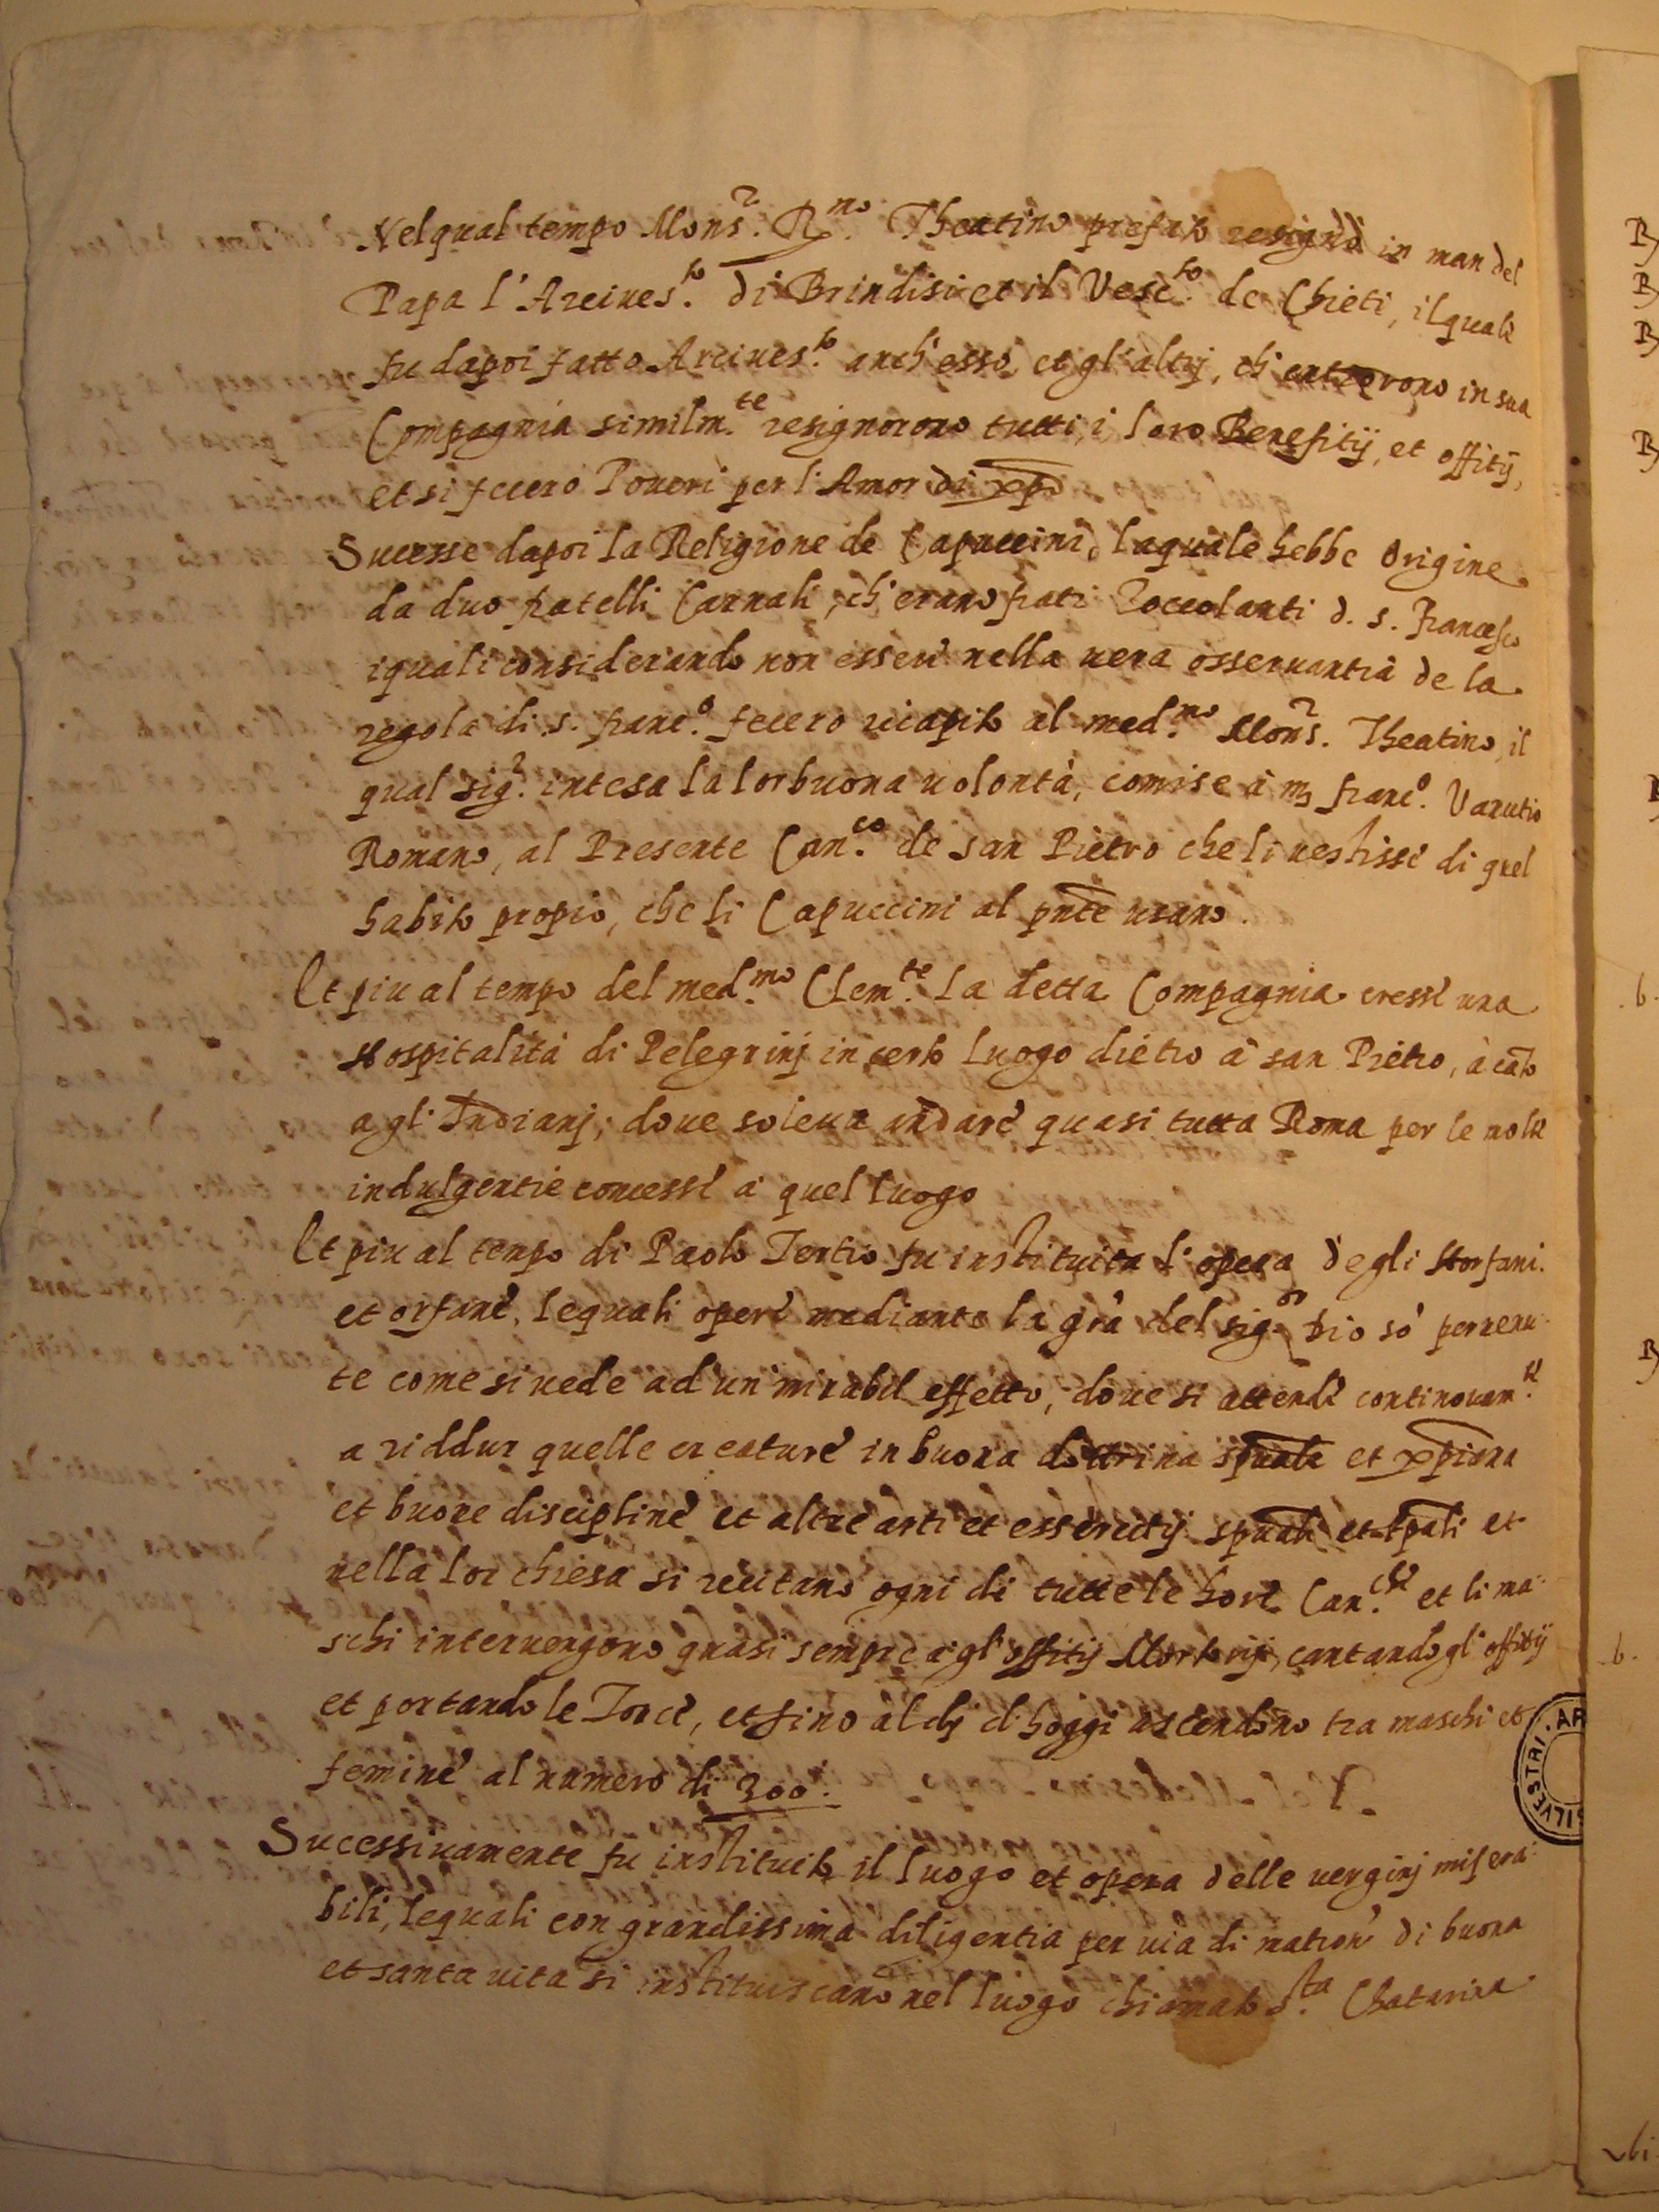 Nelqual tempo Mons.r R.mo Theatino prefato resignò in man del
Papa l'Arciues.to di Brindisi et il Vesc.to de Chieti, ilquale
fu dapoi fatto Arciues.to anch'esso, et gl'altrj, ch'entrorono in sua
Compagnia similm.te resignorono tutti i loro Benefitij, et offitij,
et si fecero Poueri per l'Amor di xpo
Sucesse dapoi la Religione de Capuccini, laquale hebbe origine
da duo fratelli Carnali, ch'erano frati Zoccolanti d. s. francesco
iquali considerando non essere nella uera osseruantia de la
regola di s. franc.o fecero ricapito al med.mo Mons.r Theatino, il
qual sig.r intesa la lor buona uolontà, comise à m franc.o Vanutio
Romano, al Presente Can.co de san Pietro che li uestisse di quel
habito propio, che li Capuccini al pnte usano.
Et piu al tempo del med.mo Clem.te la detta Compagnia eresse una
Hospitalità di Pelegrinj in certo luogo dietro à san Pietro, à cato
a gl'Indianj, doue soleua andare quasi tutta Roma per le molte
indulgentie concesse à quel luogo
Et piu al tempo di Paolo Tertio fu instituita l'opera degli Horfani
et orfane, lequali opere mediante la grà del sig.or Dio so' peruenu-
te come si uede ad un mirabil effetto, doue si attende continouam.te
a riddur quelle creature in buona dottrina spuale et xpiana
et buone discipline et altre arti et essercitij spuali et tpali et
nella lor chiesa si recitano ogni di tutte le hore Can.che et li ma-
schi interuengono quasi sempre à gl'offitij Mortorij, cantando gl'offitij
et portando le Torce, et fino al dj d'hoggi ascendono tra maschi et
femine al numero di 300.
Sucessiuamente fu instituito il luogo et opera delle uerginj misera-
bili, lequali con grandissima diligentia per uia di matrone di buona
et santa uita si instituiscano nel luogo chiamato S.ta Chatarina